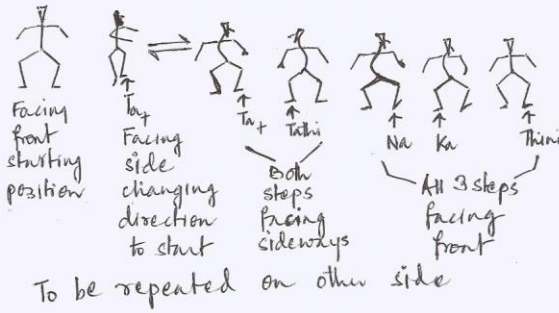 Facing
front
starting
position
Ta+
Facing
side
changing
direction
to start
Ta+
Tathi
Both
steps
facing
sideways
Na
Ka
Thin
All 3 steps
facing
front
To be repeated on other side